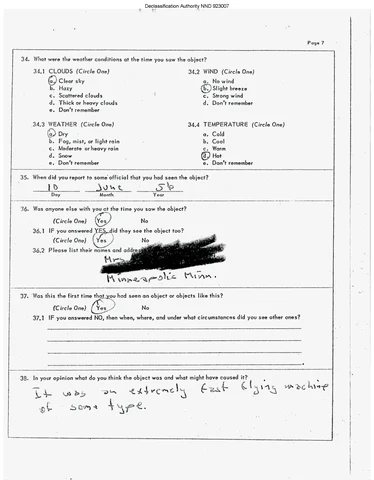 Declassification Authority NND 923007
Page 7
34. What were the weather conditions at the time you saw the object?
34.1 CLOUDS (Circle One) 34.2 WIND (Circle One)
a. Clear sky a. No wind
b. Hazy b. Slight breeze
c. Scattered clouds c. Strong wind
d. Thick or heavy clouds d. Don't remember
e. Don't remember
34.3 WEATHER (Circle One) 34.4 TEMPERATURE (Circle One)
a. Dry a. Cold
b. Fog, mist, or light rain b. Cool
c. Moderate or heavy rain c. Warm
d. Snow d. Hot
e. Don't remember e. Don't remember
35. When did you report to some official that you had seen the object?
10 June 56
Day Month Year
36. Was anyone else with you at the time you saw the object?
(Circle One) Yes No
36.1 IF you answered YES, did they see the object too?
(Circle One) Yes No
36.2 Please list their names and addresses
Mrs
Minneapolis Minn.
37. Was this the first time that you had seen an object or objects like this?
(Circle One) Yes No
37.1 IF you answered NO, then when, where, and under what circumstances did you see other ones?
38. In your opinion what do you think the object was and what might have caused it?
It was an extremely fast flying machine
of some type.